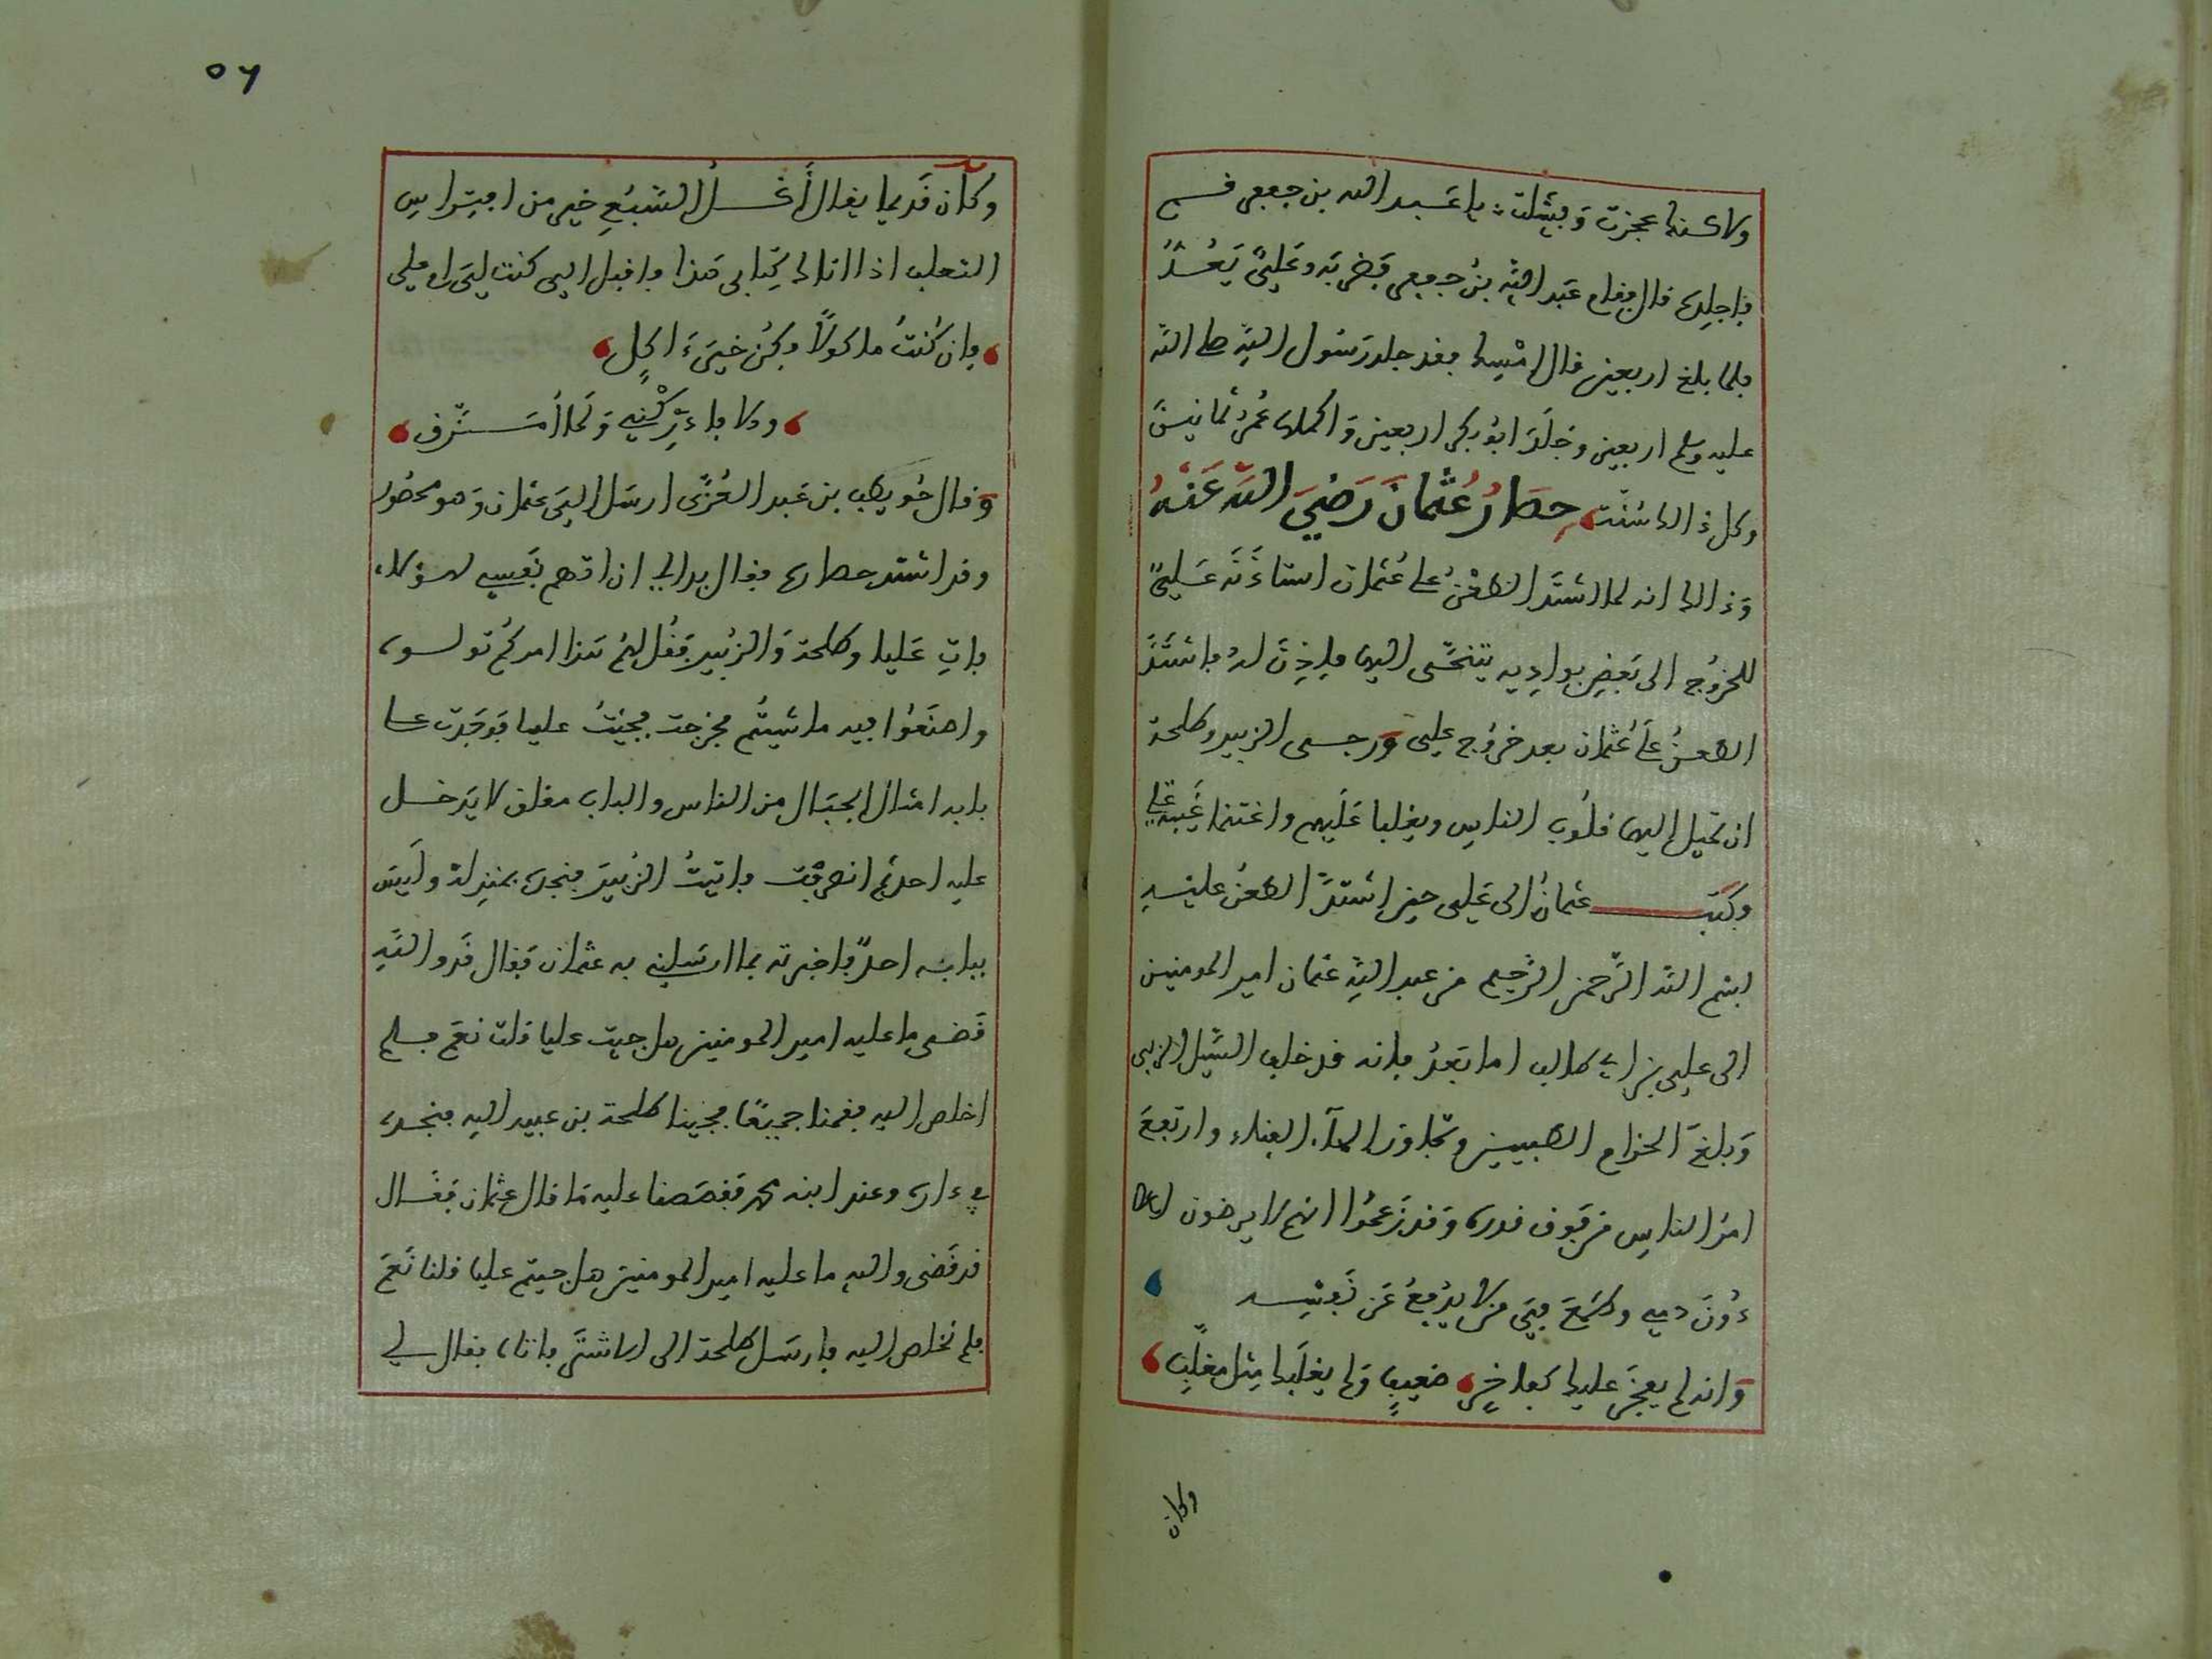 ولاكنك عجزت وفشلت يا عبد الله بن جعفر قم
فاجلده قال فقام عبد الله بن جعفر فضربه وعلي يعد
فلما بلغ اربعين قال امسك فقد جلد رسول الله صلى الله
عليه وسلم اربعين وجلد ابو بكر اربعين واكملها عمر ثمانين
وكل ذالك سنت حصار عثمان رضي الله عنه
وذالك انه لما اشتد الطعن على عثمان استاذنه علي
للخروج الى بعض بواديه يتنحى اليها فاذن له فاشتد
الطعن على عثمان بعد خروج علي ورجى الزبير وطلحة
ان تميل اليهما قلوب الناس ويغلبا عليهم واغتنما غيبة علي
وكتب عثمان الى علي حين اشتد الطعن عليه
بسم الله الرحمن الرحيم من عبد الله عثمان امير المومنين
الى علي بن ابي طالب اما بعد فانه قد خلف السيل الزبى
وبلغ الحزام الطبيين وتجاوز الماء الفناء وارتفع
امر الناس من فوق قدره وقد زعموا انهم لا يرضون
دون دمي وطمع في من لا يدفع عن نفسه
وانه لم يعجز عليك كفاخر ضعيف ولم يغلبك مثل مغلب
وكان
٥٦
وكان قديما يقال أكل السبع خير من افتراس
الثعلب اذا اتاك كتابي هذا فاقبل الي كنت لي او علي
فان كنت ماكولا فكن خير ءاكل
ولا فادركني ولما أمزق
وقال حويطب بن عبد العزى ارسل الي عثمان وهو محصور
وقد اشتد حصاره فقال بدا لي ان اتهم نفسي لهؤلاء
فات عليا وطلحة والزبير فقل لهم هذا امركم تولوه
واصنعوا فيه ما شيتم فخرجت فجئت عليا فوجدت على
بابه امثال الجبال من الناس والباب مغلق لا يدخل
عليه احد ثم انصرفت فاتيت الزبير فنجده بمنزله وليس
ببابه احد فاخبرته بما ارسلني به عثمان فقال قد والله
قضى ما عليه امير المومنين هل جيت عليا قلت نعم فلم
اخلص اليه فقمنا جميعا فجينا طلحة بن عبيد الله فنجده
في داره وعند ابنه محمد فقصصنا عليه ما قال عثمان فقال
قد قضى والله ما عليه امير المومنين هل جيتم عليا قلنا نعم
فلم نخلص اليه فارسل طلحة الى الاشتر فاتاه فقال لي